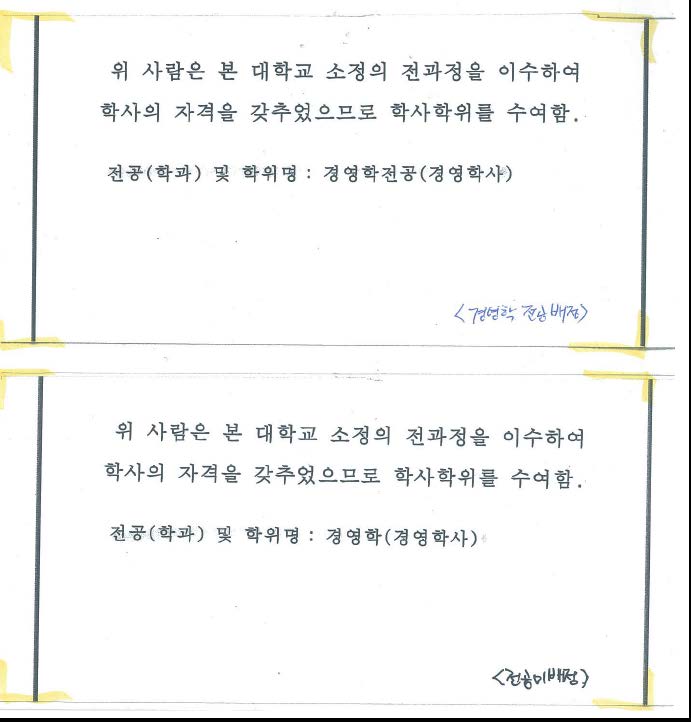 위 사람은 본 대학교 소정의 전과정을 이수하여
학사의 자격을 갖추었으므로 학사학위를 수여함.
전공(학과) 및 학위명 : 경영학전공(경영학사)
<경영학 전공 배정>
위 사람은 본 대학교 소정의 전과정을 이수하여
학사의 자격을 갖추었으므로 학사학위를 수여함.
전공(학과) 및 학위명 : 경영학(경영학사)
<전공미배정>